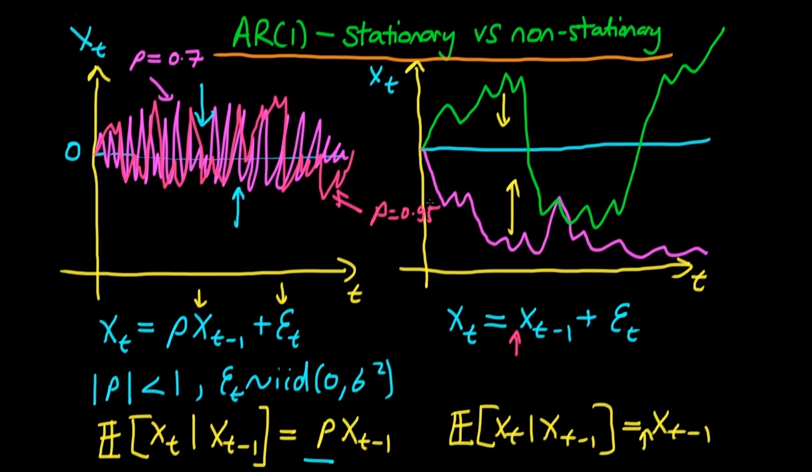 AR(1) – stationary vs non-stationary
Xt
ρ = 0.7
0
ρ=0.95
t
Xt
t
Xt = ρXt-1 + Ɛt
|ρ| < 1, Ɛt ~ iid(0, б²)
𝔼[Xt | Xt-1] = ρXt-1
Xt = Xt-1 + Ɛt
𝔼[Xt | Xt-1] = Xt-1